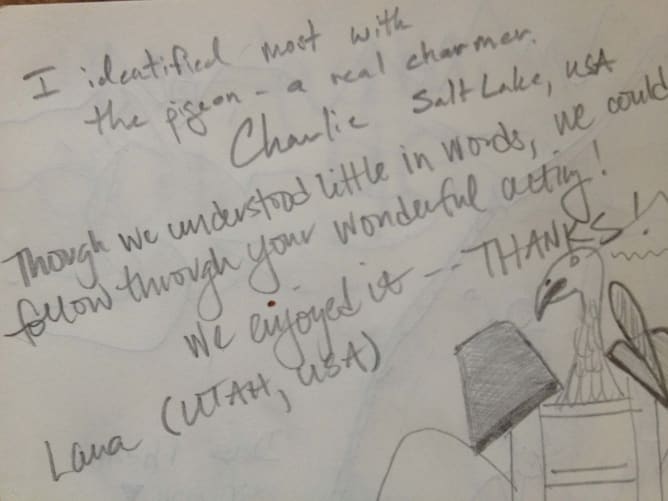 I identified most with
the pigeon - a real charmer.
Charlie Salt Lake, USA
Though we understood little in words, we could
follow through your wonderful acting!
We enjoyed it -- THANKS!
Lana (UTAH, USA)